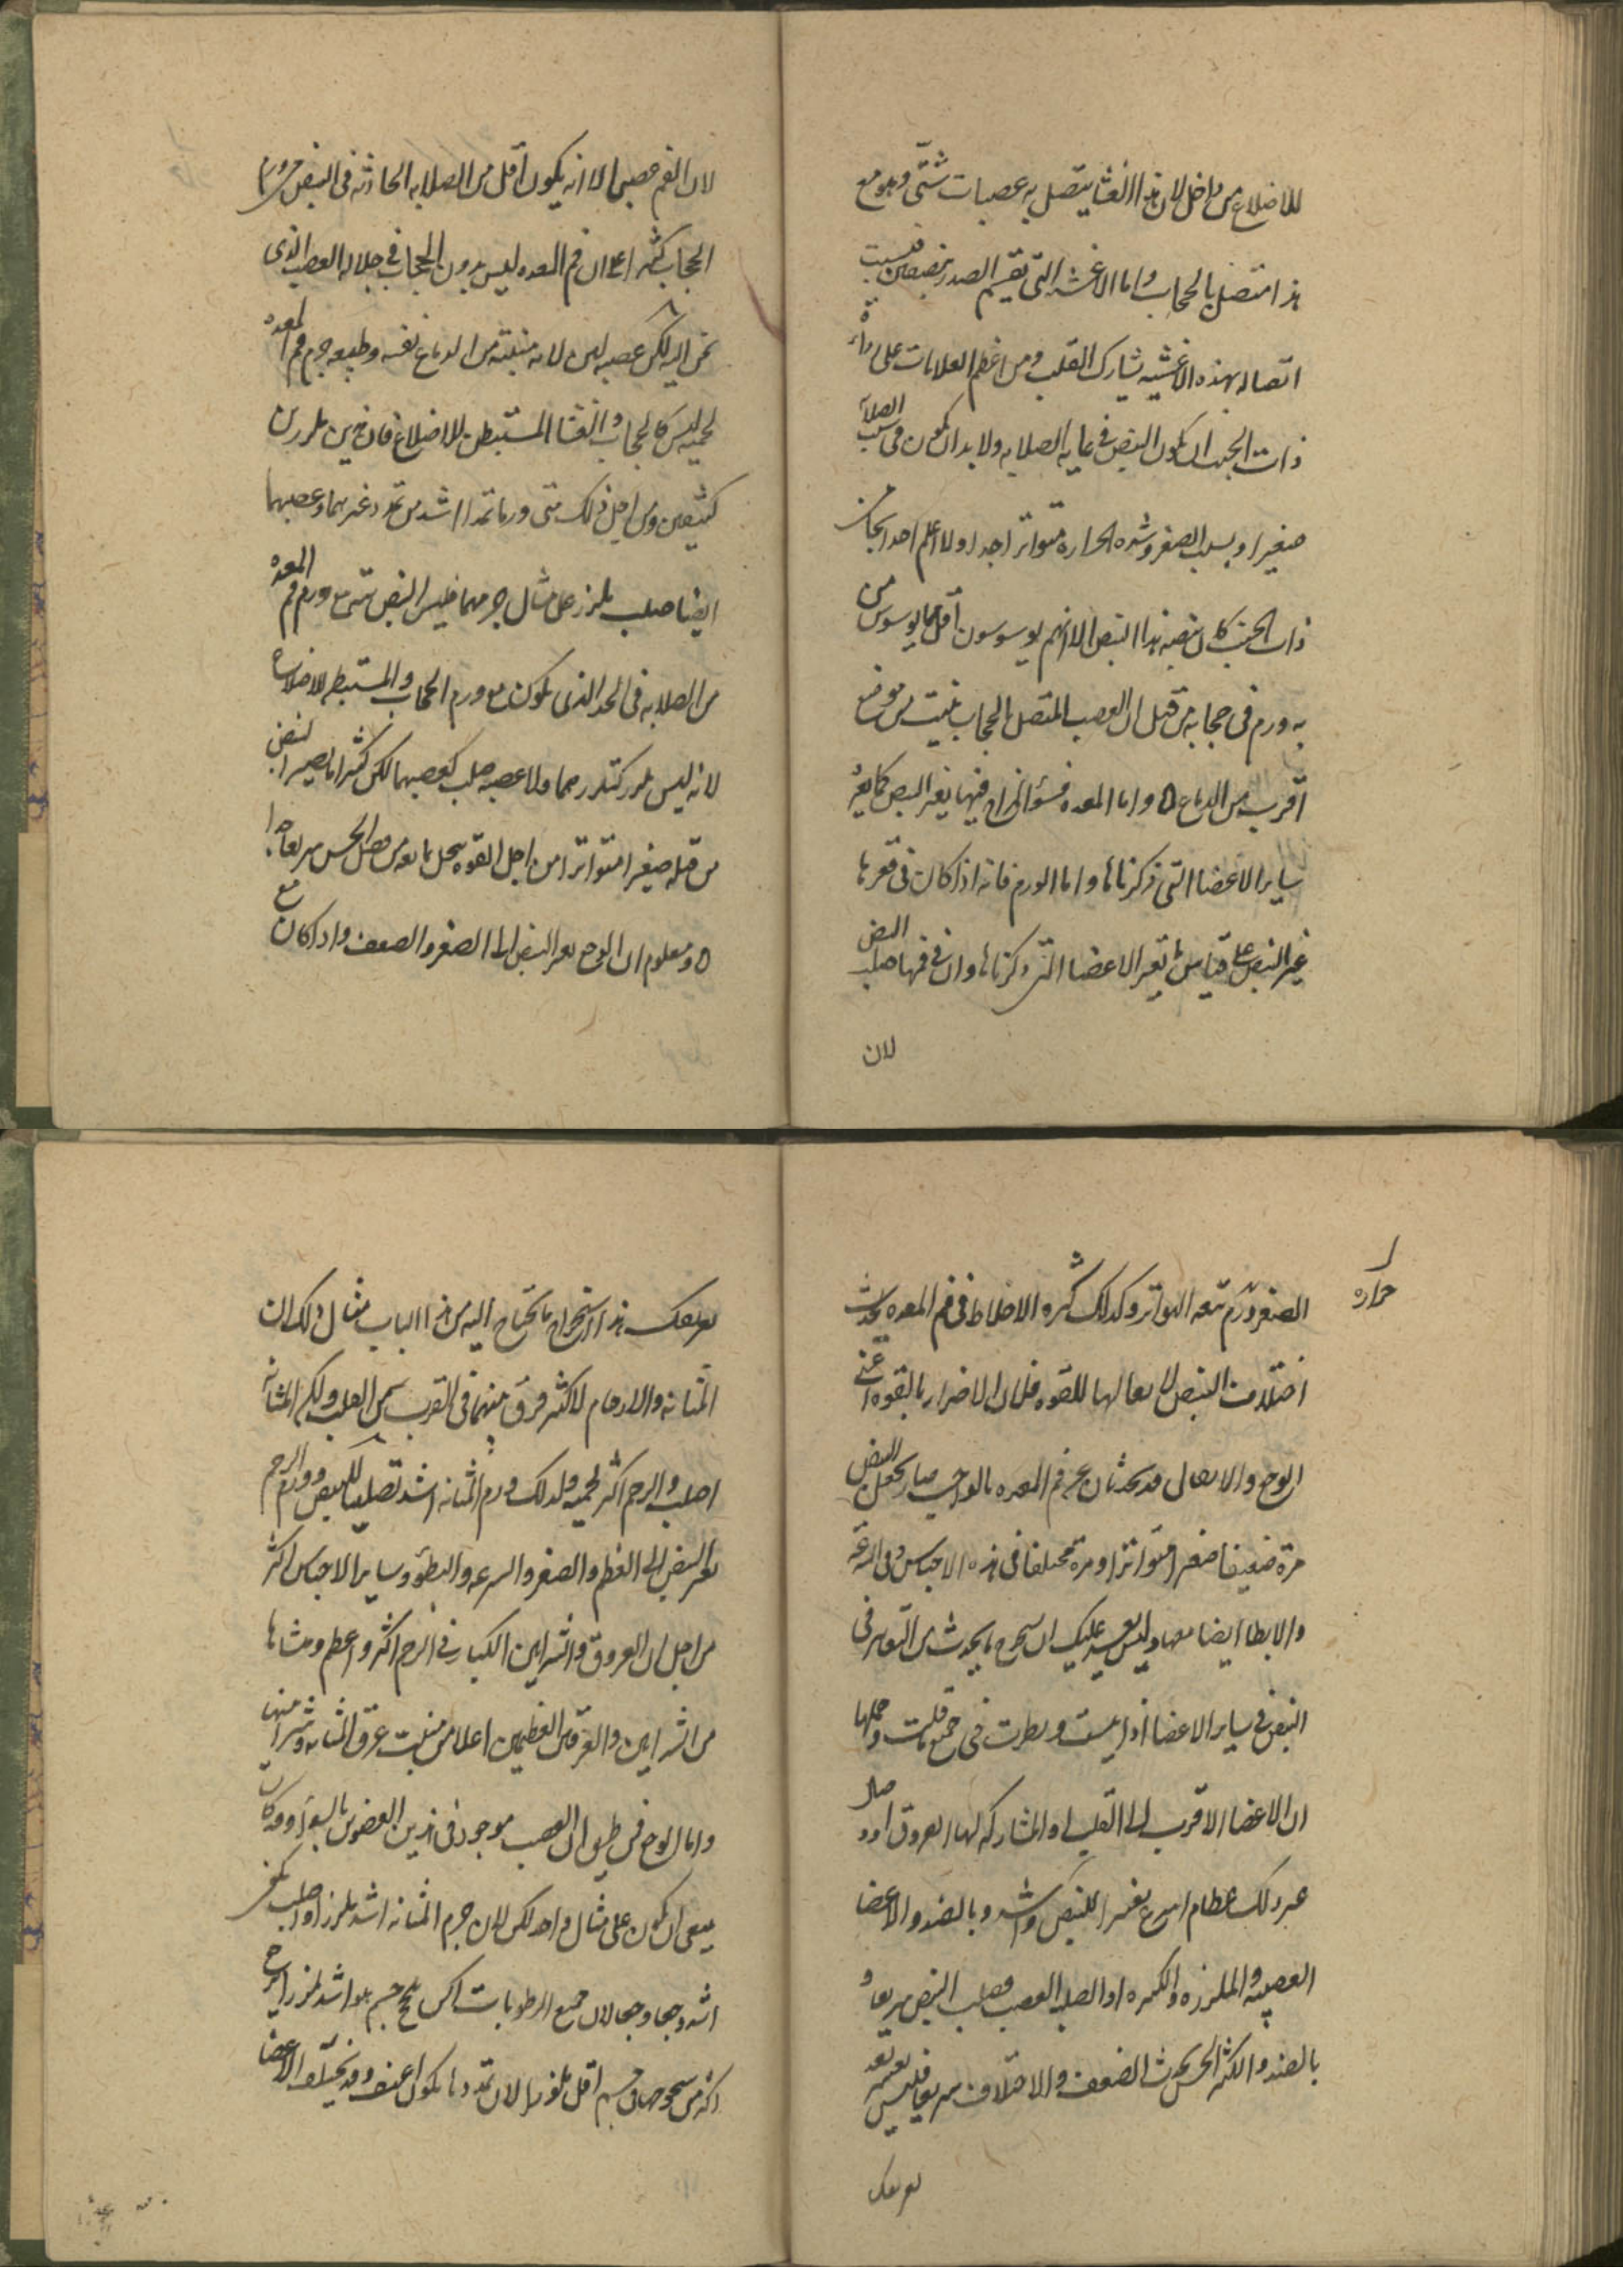 للاضلاع من داخل لان هذا الغشا يتصل به عصبات شتى وهو مع
هذا متصل بالحجاب واما الاغشيه التى تقسم الصدر بنصفين فبسبب
اتصاله بهذه الاغشيه تشارك القلب ومن اعظم العلامات على
ذات الجنب ان يكون النبض فى غايه الصلابه ولا بد ان يكون فى سبب الصلابه
صغيرا وبسبب الصغر وشده الحراره متواترا جدا ولا اعلم احدا
ذات الجنب كان نبضه هذا النبض الا انهم يوسوسون اقل مما يوسوس من
به ورم فى حجابه من قبل ان العصب المتصل بالحجاب ينبت من موضع
اقرب من الدماع ٥ واما المعده فسؤ المزاج فيها يغير النبض كما يغير
ساير الاعضا التى ذكرناها واما الورم فانه اذا كان فى قعرها
غير النبض على قياس ما تغير الاعضا التى ذكرناها وان فى فمها صلب النبض
لان
لان الفم عصبى الا انه يكون اقل من الصلابه الحادثه فى النبض من ورم
الحجاب كثيرا على ان فم المعده ليس بدون الحجاب فى جلاله العصب الذى
نحن اليه لكن عصبه لين لانه منبته من الدماغ نفسه وطبيعه جرم فم المعده
لحميه ليس كالحجاب والغشا المستبطن للاضلاع فان ذين ملززين
كثيفين ومن اجل ذلك متى ورما تمددا اشد من تمدد غيرهما وعصبهما
ايضا صلب ملزز على مثال جرمهما فليس النبض متى ورم فم المعده
من الصلابه فى الحد الذى يكون مع ورم الحجاب والمستبطن للاضلاع
لانه ليس ملزز كتلززهما ولا عصبه صلب كعصبهما لكن كثيرا ما يصير النبض
من قبله صغيرا متواترا من اجل القوه تنحل مع فضل الحس سريعا جدا
٥ ومعلوم ان الوجع يغير النبض الى الصغر والضعف واذا كان مع
حراره
الصغر ورم تبعه التواتر وكذلك كثره الاخلاط فى فم المعده يحدث
اختلاف النبض لاثقالها للقوه فلما ان الاضرار بالقوه اعنى
الوجع والاثقال قد يحدثان عن فم المعده بالواجب صار يجعل النبض
مرة ضعيفا صغيرا متواترا ومرة مختلفا فى هذه الاجناس وفى السرعه
والابطا ايضا معها وليس يعسر عليك ان تستخرج ما يحدث من التغاير فى
النبض فى ساير الاعضا اذا قست ونظرت فى جميع ما قلت وجملها
ان الاعضا الاقرب الى القلب او المشاركه لها بعروق او
غير ذلك عظام اسرع تغييرا للنبض واشد وبالضد والاعضا
العصبيه والملززه والكثيره او الصلبه العصب تصلب النبض سريعا و
بالضد والكثيره الحس تحدث الضعف والاختلاف سريعا فليس يعسر بعد
تعريفك
تعريفك هذا استخراج ما تحتاج اليه من هذا الباب مثال ذلك ان
المثانه والارحام لا كثير فرق بينهما فى القرب من القلب ولكن المثانه
اصلب والرحم اكثر لحميه ولذلك ورم المثانه اشد تصليبا للنبض وورم الرحم
يغير النبض الى العظم والصغر والسرعه والبطؤ وساير الاجناس اكثر
من اجل ان العروق والشرايين الكبار فى الرحم اكثر واعظم ومنشاها
من الشرايين والعرقين العظيمين اعلا من منبت عرق المثانه وشرايينها
واما الوجع فمن طريق ان العصب موجود فى هذين العضوين بالسواء وقد كان
ينبغى ان يكون على مثال واحد لكن لان جرم المثانه اشد تلززا واصلب
اشد وجعا لان جميع الرطوبات التى تخرج من جسم هو اشد تلززا يوجع
اكثر من خروجها من جسم اقل تلززا لان تمددها يكون اعنف وقد تختلف الاعضا